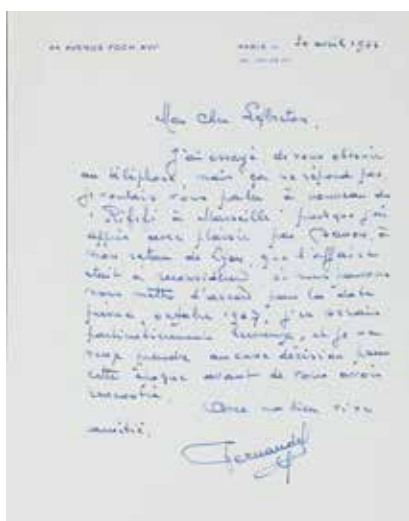 44 AVENUE FOCH XVIe
PARIS le 20 avril 19
Mon Cher Lebreton,
J'ai essayé de vous obtenir
au téléphone, mais ça ne répond pas
je voulais vous parler à nouveau de
"Rififi à Marseille" puisque j'ai
appris avec plaisir par à
mon retour de Lyon, que l'affaire
était à reconsidérer. si nous pouvons
nous mettre d'accord pour la date
octobre 1967, j'en serais
particulièrement heureux, et je ne
veux prendre aucune décision pour
cette époque avant de vous avoir
rencontré.
Avec ma bien vive
amitié.
Fernandel